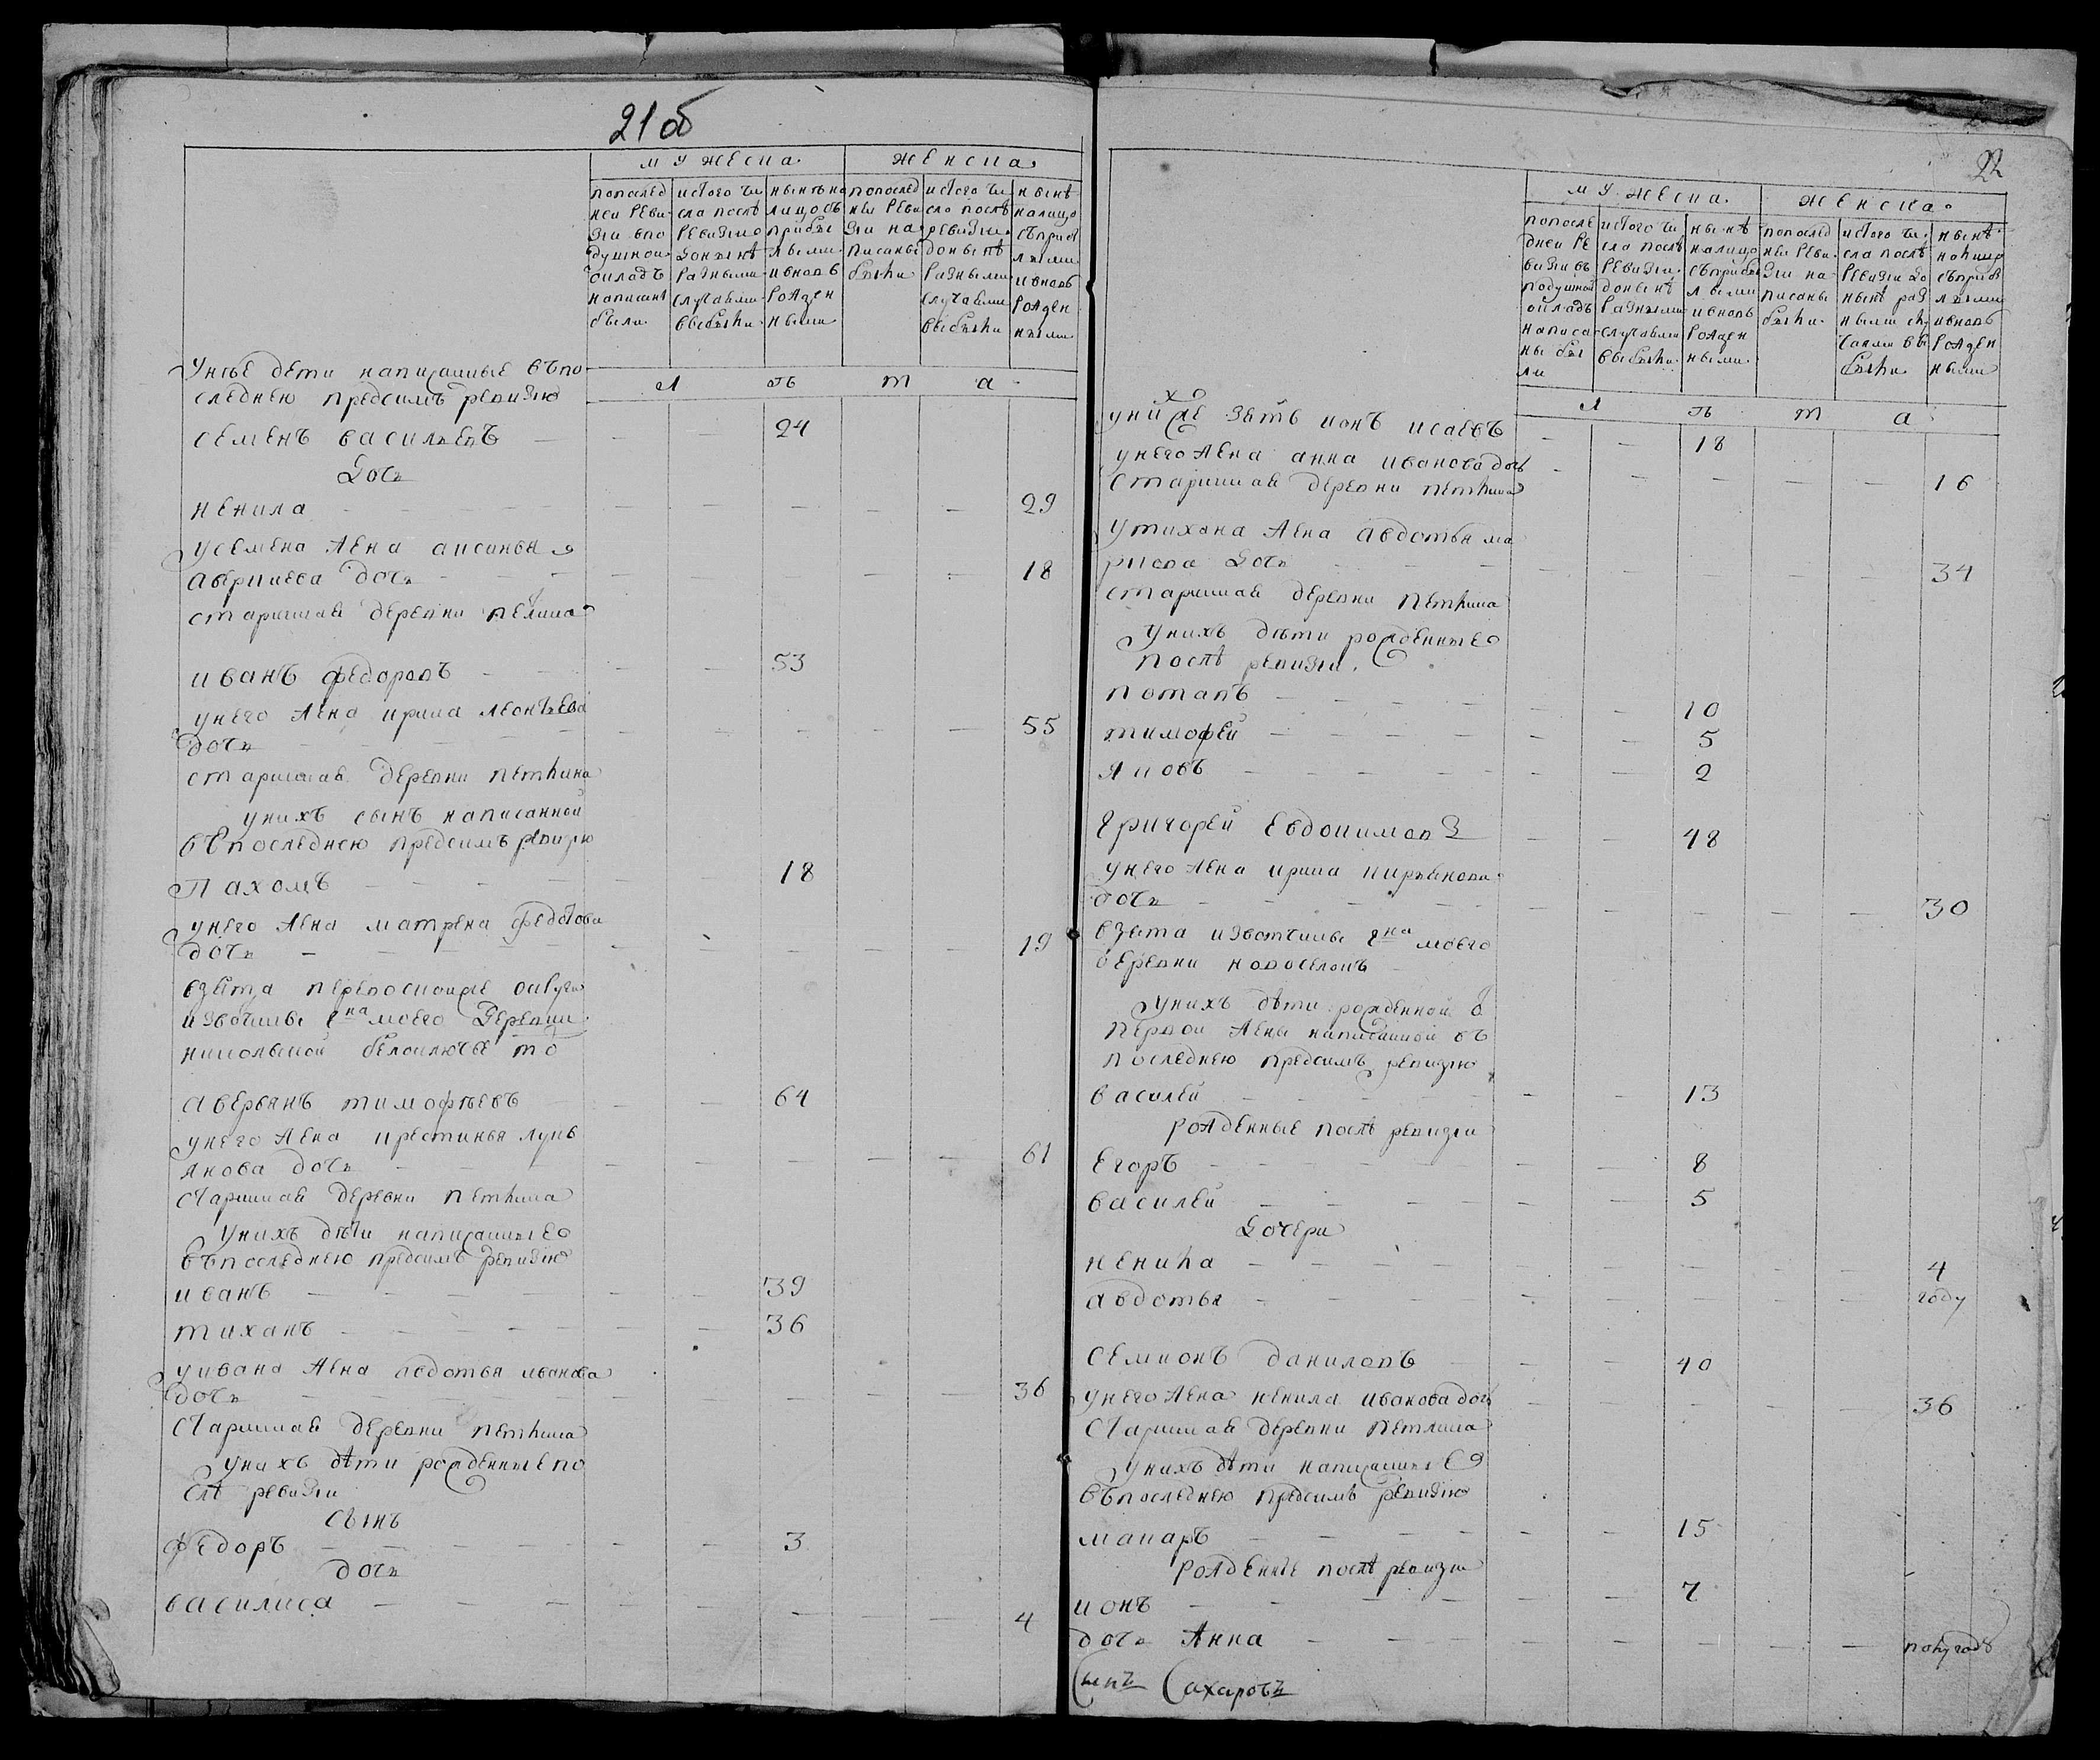 21 об
мужеска
женска
попослед
ней реви
зии впо
душной
окладъ
написаны
были
истого чи
сла послѣ
ревизии
донынѣ
разными
случаями
выбыли
нынѣ на
лицо съ
прибы
лыми
ивновь
рожден
ными
попослед
ней реви
зии на
писаны
были
истого чи
сло послѣ
ревизии
донынѣ
разными
случаями
выбыли
нынѣ
налицо
съприб
лыми
ивновь
рожден
ными
лѣта
унѣе дети написанные въпо
следнею предсимъ ревизию
семенъ васильевъ 24
дочь
ненила 29
усемена жена аксинья
дочь 18
старинная деревни
иванъ федоровъ 53
унего жена ирина леонтьева
дочь 55
стариннав деревни петлина
унихъ сынъ написанной
въпоследнею предсимъ ревизию
Пахомъ 18
унего жена матрена федотова
дочь 19
взята
извотчины гна моего деревни
никольской
аверьянъ тимофѣевъ 64
унего жена крестинья лукь
янова дочь 61
стариннав деревни петлина
Унихъ дѣти написанные
въпоследнею предсимъ ревизию
иванъ 39
тиханъ 36
уивана жена авдотья иванова
дочь 36
стариннав деревни петлина
унихъ дѣти рожденные по
слѣ ревизии
сынъ
федоръ 3
дочь
василиса 4
22
мужеска
женска
попосле
дней ре
визии въ
подушной
окладъ
написа
ны бы
ли
истого чи
сла послѣ
ревизии
донынѣ
разными
случаями
выбыли
нынѣ
налицо
съприбы
лыми
ивновь
рожден
ными
попослед
ней реви
зии на
писаны
были
истого чи
сла послѣ
ревизии до
нынѣ раз
ными слу
чаями вы
были
нынѣ
налицо
съприб
лыми
ивновь
рожден
ными
лѣта
зять ионъ исаевъ 18
унего жена анна иванова дочь 16
стариннав деревни петлина
утихана жена авдотья ма
ркова дочь 34
стариннав деревни петлина
унихъ дѣти рожденные
послѣ ревизии
потапъ 10
тимофей 5
яковъ 2
григорей евдокимовъ 48
унего жена ирина кирьянова
дочь 30
взята извотчины гна моего
деревни новоселокъ
унихъ дѣти рожденной о
первой жены написанной въ
последнею предсимъ ревизию
василей 13
рожденные послѣ ревизии
егоръ 8
василей 5
дочери
ненила 4
авдотья году
семионъ даниловъ 40
унего жена ненила иванова дочь 36
стариннав деревни петлина
унихъ дѣти написанные
въпоследнею предсимъ ревизию
макаръ 15
рожденые послѣ ревизии
ионъ 7
дочь Анна полугоду
Сахаровъ